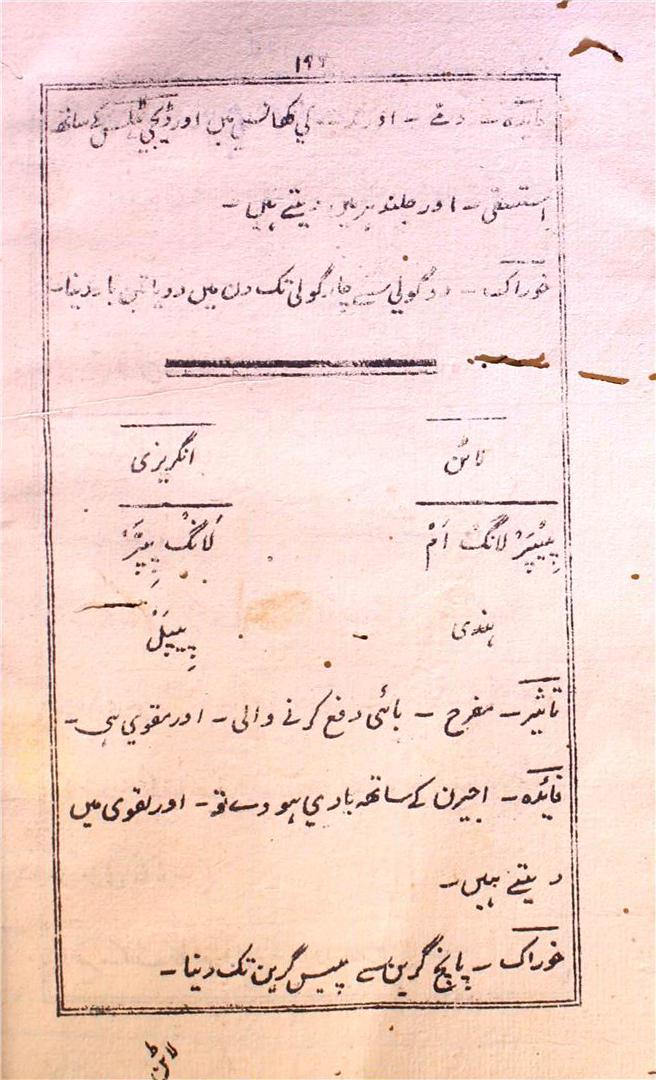 فائدہ - دمے - اور کھانسی میں اور ڈیجی ٹیلس کے ساتھ
استسقی - اور جلندہر میں دیتے ہیں -
خوراک - دو گولی سے چار گولی تک دن میں دو یا تین بار دینا -
لاٹن انگریزی
پِیْپَرْ لانگْ اَمْ لَانگْ پِیپَرْ
ہندی پِیپَلْ
تاثیر - مفرح - بائی دفع کرنے والی - اور مقوي ہی -
فائدہ - اجیرن کے ساتھہ بادي ہووے تو - اور لقوی میں
دیتے ہیں -
خوراک - پانچ گرین سے بیس گرین تک دینا -
لاٹن